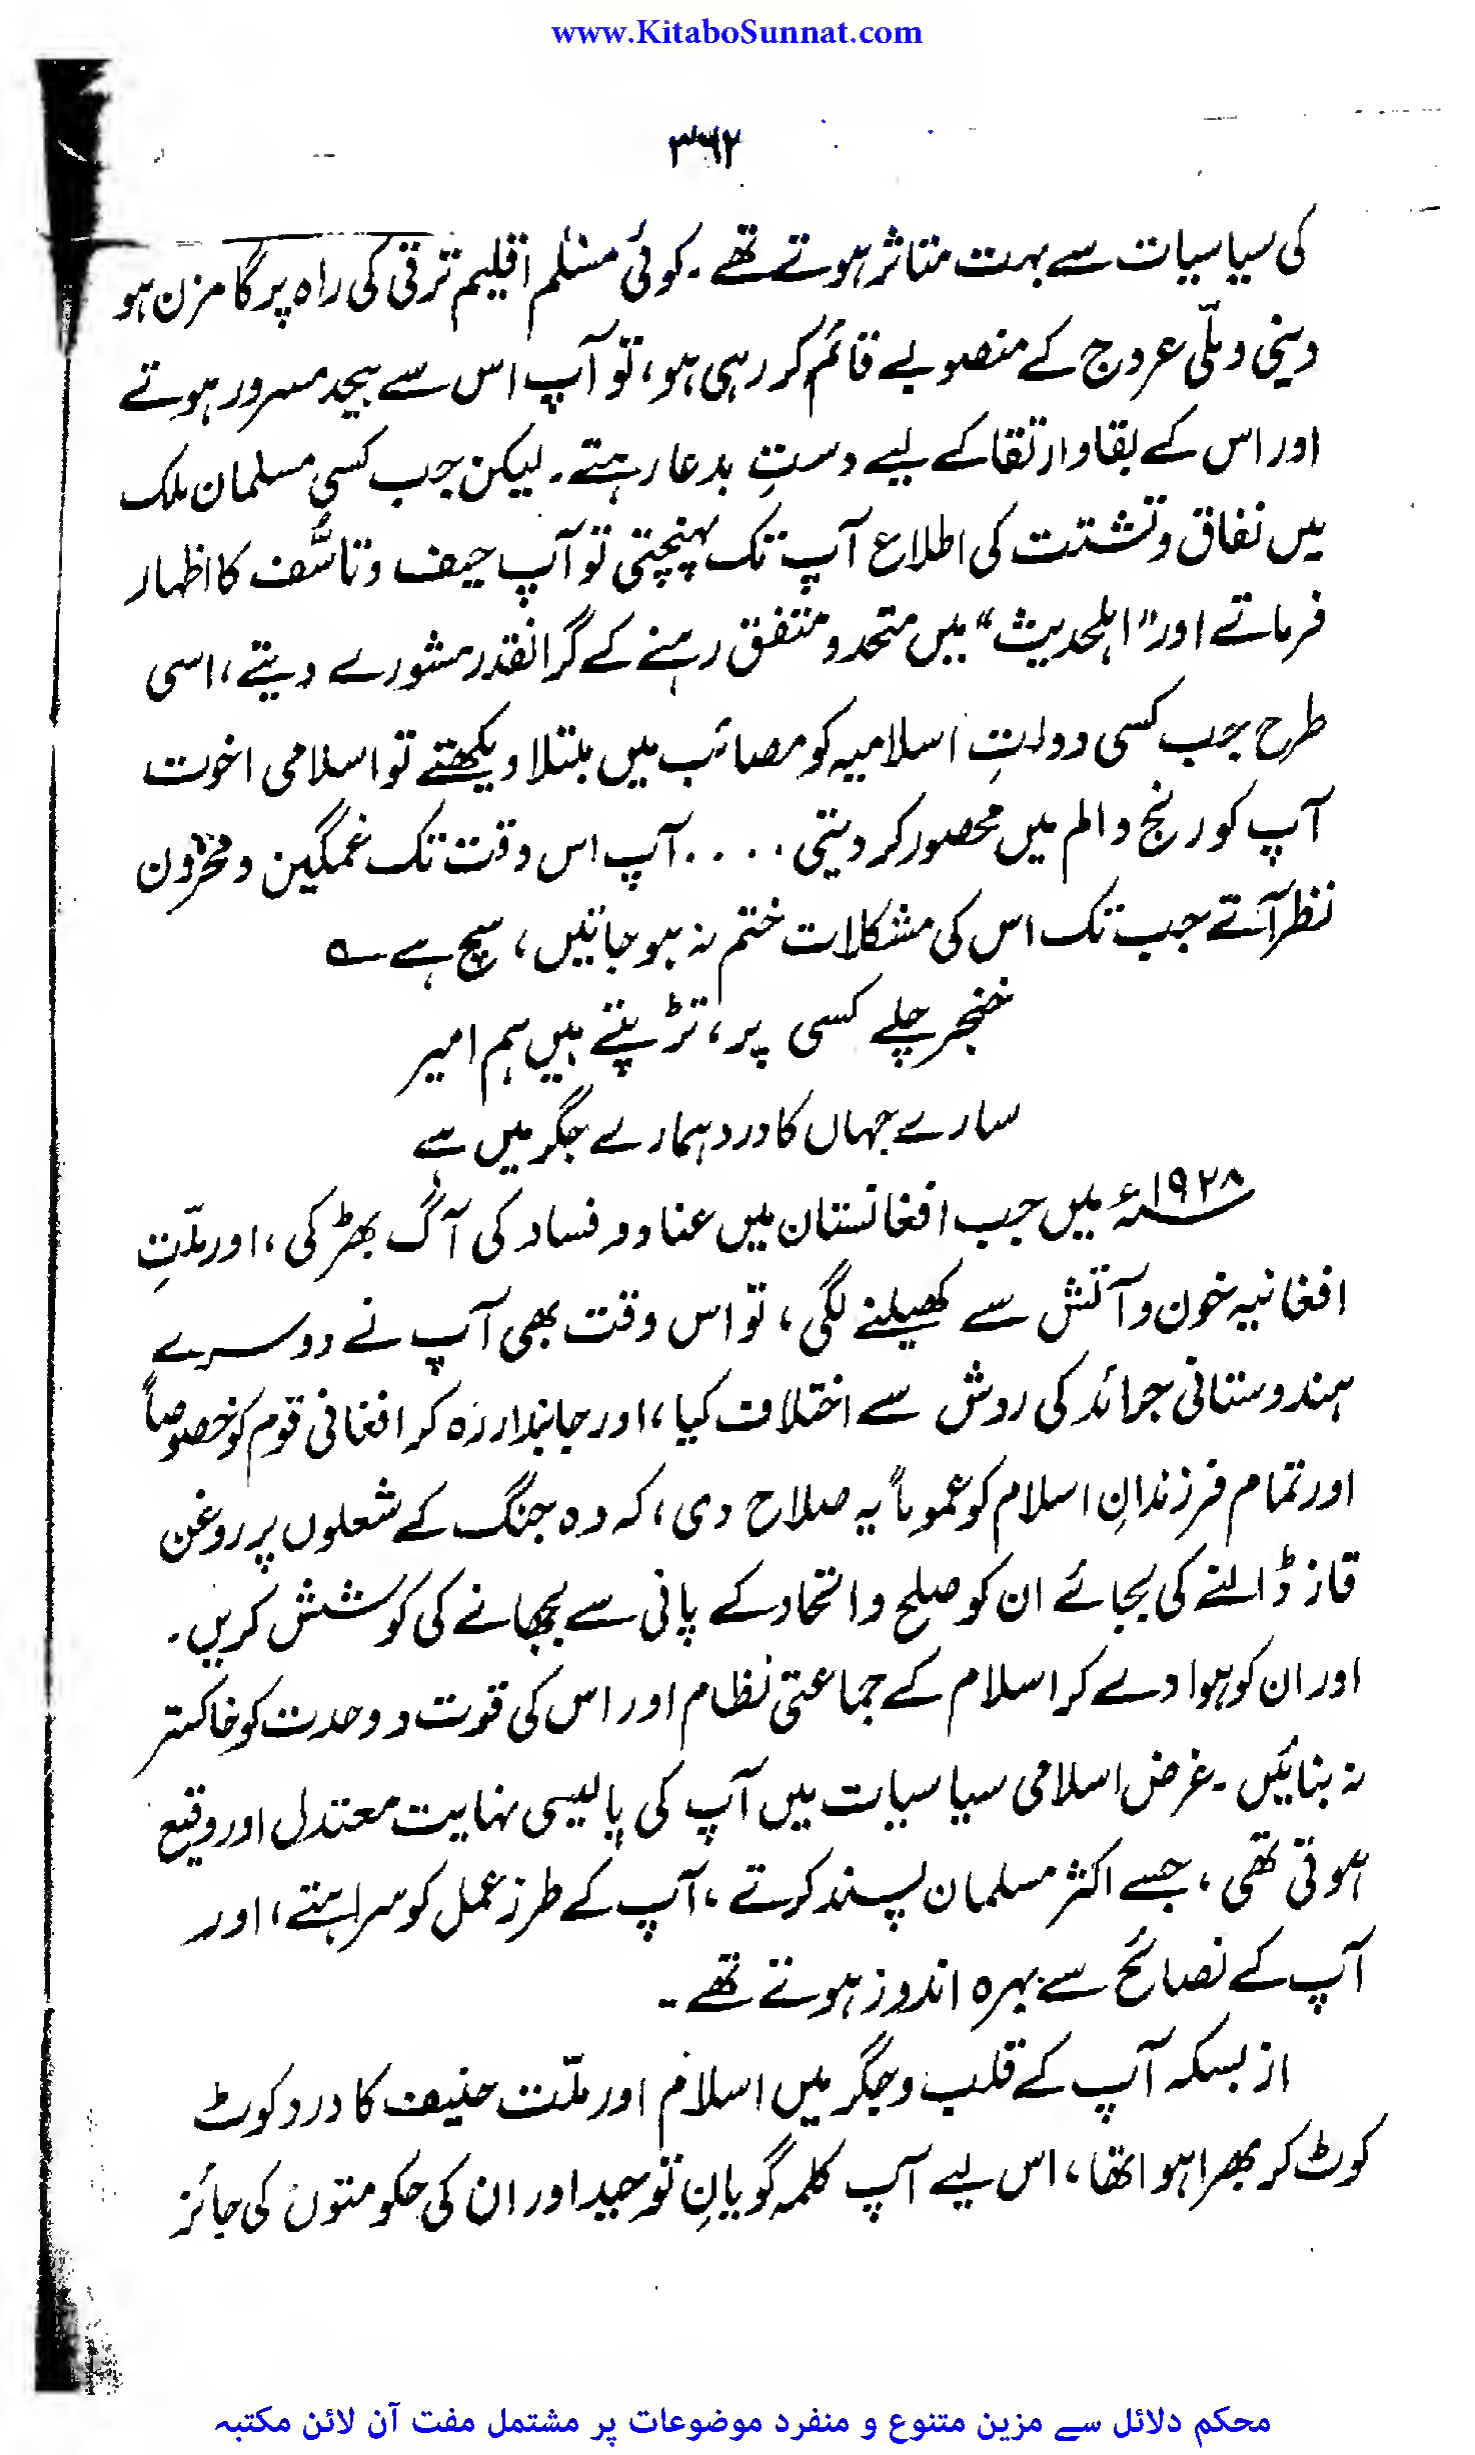 www.KitaboSunnat.com
۳۶۲
کی سیاسیات سے بہت متاثر ہوتے تھے۔ کوئی مسلم اقلیم ترقی کی راہ پر گامزن ہو
دینی و ملّی عروج کے منصوبے قائم کر رہی ہو، تو آپ اس سے بیحد مسرور ہوتے
اور اس کے بقا و ارتقا کے لیے دستِ بدعا رہتے۔ لیکن جب کسی مسلمان ملک
میں نفاق و تشتت کی اطلاع آپ تک پہنچتی تو آپ حیف و تاسُّف کا اظہار
فرماتے اور "اہلحدیث" میں متحد و متفق رہنے کے گرانقدر مشورے دیتے، اسی
طرح جب کسی دولتِ اسلامیہ کو مصائب میں مبتلا دیکھتے تو اسلامی اخوت
آپ کو رنج و الم میں محصور کر دیتی ۔۔۔۔ آپ اس وقت تک غمگین و محزون
نظر آتے جب تک اس کی مشکلات ختم نہ ہو جاتیں، سچ ہے ؎
خنجر چلے کسی پر، تڑپتے ہیں ہم امیر
سارے جہاں کا درد ہمارے جگر میں ہے
۱۹۲۸ء میں جب افغانستان میں عناد و فساد کی آگ بھڑکی، اور ملّتِ
افغانیہ خون و آتش سے کھیلنے لگی، تو اس وقت بھی آپ نے دوسرے
ہندوستانی جرائد کی روش سے اختلاف کیا، اور جانبدار رہ کر افغانی قوم کو خصوصاً
اور تمام فرزندانِ اسلام کو عموماً یہ صلاح دی، کہ وہ جنگ کے شعلوں پر روغن
قاز ڈالنے کی بجائے ان کو صلح و اتحاد کے پانی سے بجھانے کی کوشش کریں۔
اور ان کو ہوا دے کر اسلام کے جماعتی نظام اور اس کی قوت و وحدت کو خاکستر
نہ بنائیں۔ غرض اسلامی سیاسیات میں آپ کی پالیسی نہایت معتدل اور وقیع
ہوتی تھی، جسے اکثر مسلمان پسند کرتے، آپ کے طرز عمل کو سراہتے، اور
آپ کے نصائح سے بہرہ اندوز ہوتے تھے۔
از بسکہ آپ کے قلب و جگر میں اسلام اور ملّت حنیف کا درد کوٹ
کوٹ کر بھرا ہوا تھا، اس لیے آپ کلمہ گویانِ توحید اور ان کی حکومتوں کی جائز
محکم دلائل سے مزین متنوع و منفرد موضوعات پر مشتمل مفت آن لائن مکتبہ